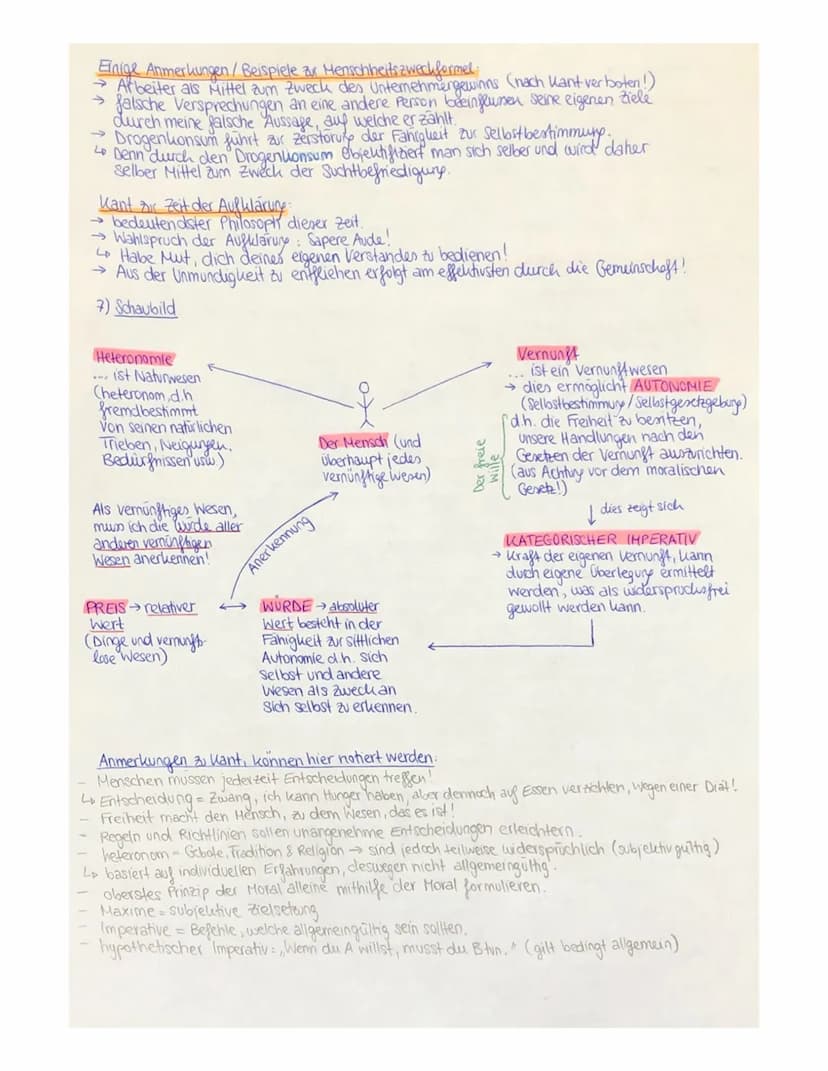 Einige Anmerkungen / Beispiele zur Menschheitszweckformel:
→ Arbeiter als Mittel zum Zweck des Unternehmergewinns (nach Kant verboten!)
→ falsche Versprechungen an eine andere Person beeinflussen seine eigenen Ziele
durch meine falsche Aussage, auf welche er zählt.
→ Drogenkonsum führt zur Zerstörung der Fähigkeit zur Selbstbestimmung.
↳ Denn durch den Drogenkonsum objektifiziert man sich selber und wird daher
selber Mittel zum Zweck der Suchtbefriedigung.
Kant zur Zeit der Aufklärung:
→ bedeutendster Philosoph dieser Zeit.
→ Wahlspruch der Aufklärung: Sapere Aude!
↳ Habe Mut, dich deines eigenen Verstandes zu bedienen!
→ Aus der Unmündigkeit zu entfliehen erfolgt am effektivsten durch die Gemeinschaft!
7) Schaubild
Heteronomie
... ist Naturwesen
(heteronom, d.h
fremdbestimmt
von seinen natürlichen
Trieben, Neigungen,
Bedürfnissen usw.)
Der Mensch (und
überhaupt jedes
vernünftige Wesen)
Vernunft
... ist ein Vernunftwesen
→ dies ermöglicht AUTONOMIE
(Selbstbestimmung / Selbstgesetzgebung)
d.h. die Freiheit zu besitzen,
unsere Handlungen nach den
Gesetzen der Vernunft auszurichten.
(aus Achtung vor dem moralischen
Gesetz!)
Der freie
Wille
dies zeigt sich
KATEGORISCHER IMPERATIV
→ Kraft der eigenen Vernunft, kann
durch eigene Überlegung ermittelt
werden, was als widerspruchsfrei
gewollt werden kann.
Als vernünftiges Wesen,
muss ich die Würde aller
anderen vernünftigen
Wesen anerkennen!
Anerkennung
PREIS → relativer
Wert
(Dinge und vernunft-
lose Wesen)
WÜRDE → absoluter
Wert besteht in der
Fähigkeit zur sittlichen
Autonomie d.h. sich
selbst und andere
Wesen als Zweck an
sich selbst zu erkennen.
Anmerkungen zu Kant, können hier notiert werden:
– Menschen müssen jederzeit Entscheidungen treffen!
↳ Entscheidung = Zwang, ich kann Hunger haben, aber dennoch auf Essen verzichten, wegen einer Diät!
– Freiheit macht den Mensch, zu dem Wesen, das es ist!
– Regeln und Richtlinien sollen unangenehme Entscheidungen erleichtern.
– heteronom = Gebote, Tradition & Religion → sind jedoch teilweise widersprüchlich (subjektiv gültig)
↳ basiert auf individuellen Erfahrungen, deswegen nicht allgemeingültig.
– oberstes Prinzip der Moral alleine mithilfe der Moral formulieren.
– Maxime = subjektive Zielsetzung
– Imperative = Befehle, welche allgemeingültig sein sollten.
– hypothetischer Imperativ = „Wenn du A willst, musst du B tun." (gilt bedingt allgemein)